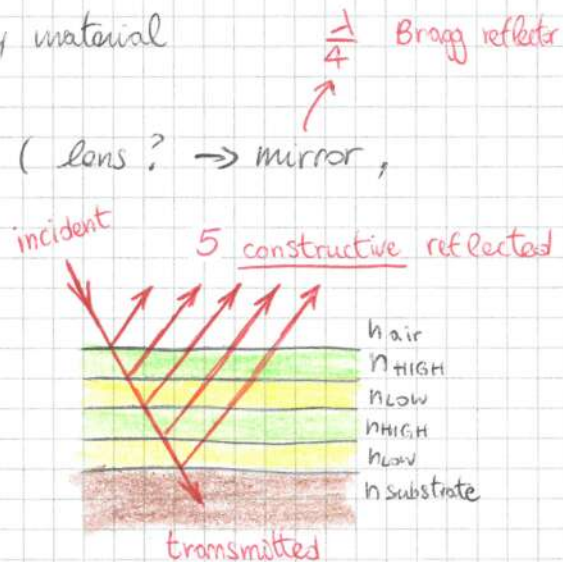 y material
λ/4 Bragg reflector
( lens ? → mirror ,
incident
5 constructive reflected
n air
n HIGH
n LOW
n HIGH
n LOW
n substrate
transmitted